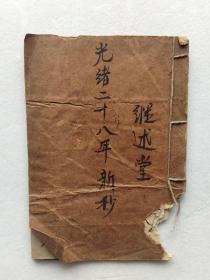 光绪二十八年新抄
继述堂